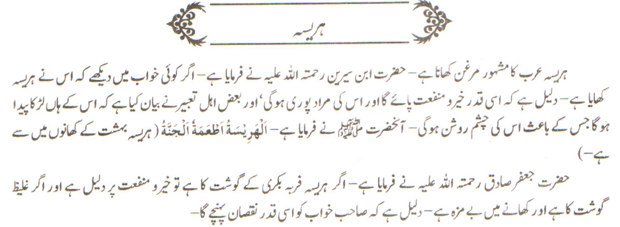 ہریسہ
ہریسہ عرب کا مشہور مرغن کھانا ہے- حضرت ابن سیرین رحمتہ اللہ علیہ نے فرمایا ہے- اگر کوئی خواب میں دیکھے کہ اس نے ہریسہ
کھایا ہے- دلیل ہے کہ اسی قدر خیر و منفعت پائے گا اور اس کی مراد پوری ہوگی' اور بعض اہل تعبیر نے بیان کیا ہے کہ اس کے ہاں لڑکا پیدا
ہو گا جس کے باعث اس کی چشم روشن ہوگی- آنحضرت ﷺ نے فرمایا ہے- اَلْهَرِيْسَةُ اَطْعَمَةُ الْجَنَّةُ (ہریسہ بہشت کے کھانوں میں سے
ہے-)
حضرت جعفر صادق رحمتہ اللہ علیہ نے فرمایا ہے- اگر ہریسہ فربہ بکری کے گوشت کا ہے تو خیر و منفعت پر دلیل ہے اور اگر غلیظ
گوشت کا ہے اور کھانے میں بے مزہ ہے- دلیل ہے کہ صاحب خواب کو اسی قدر نقصان پہنچے گا-